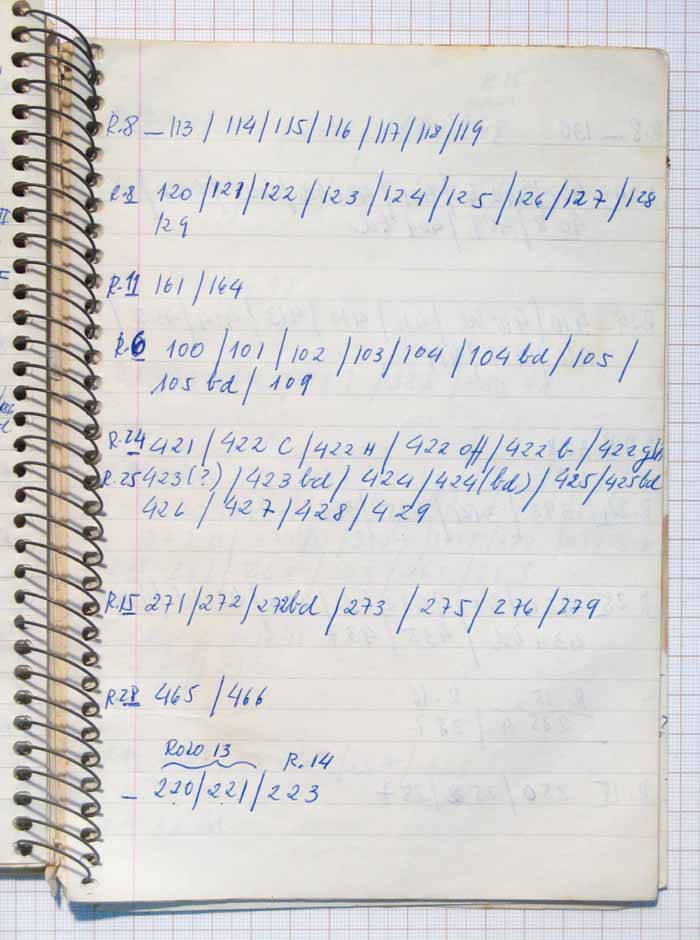 R.8 – 113 / 114 / 115 / 116 / 117 / 118 / 119
R.8 120 / 121 / 122 / 123 / 124 / 125 / 126 / 127 / 128
129
R.11 161 / 164
R.6 100 / 101 / 102 / 103 / 104 / 104 bd / 105 /
105 bd / 109
R.24 421 / 422 C / 422 H / 422 off / 422 b /
R.25 423 (?) / 423 bd / 424 / 424 (bd) / 425 / 425 bd
426 / 427 / 428 / 429
R.15 271 / 272 / 272bd / 273 / 275 / 276 / 279
R.28 465 / 466
Rolo 13 R.14
– 220 / 221 / 223